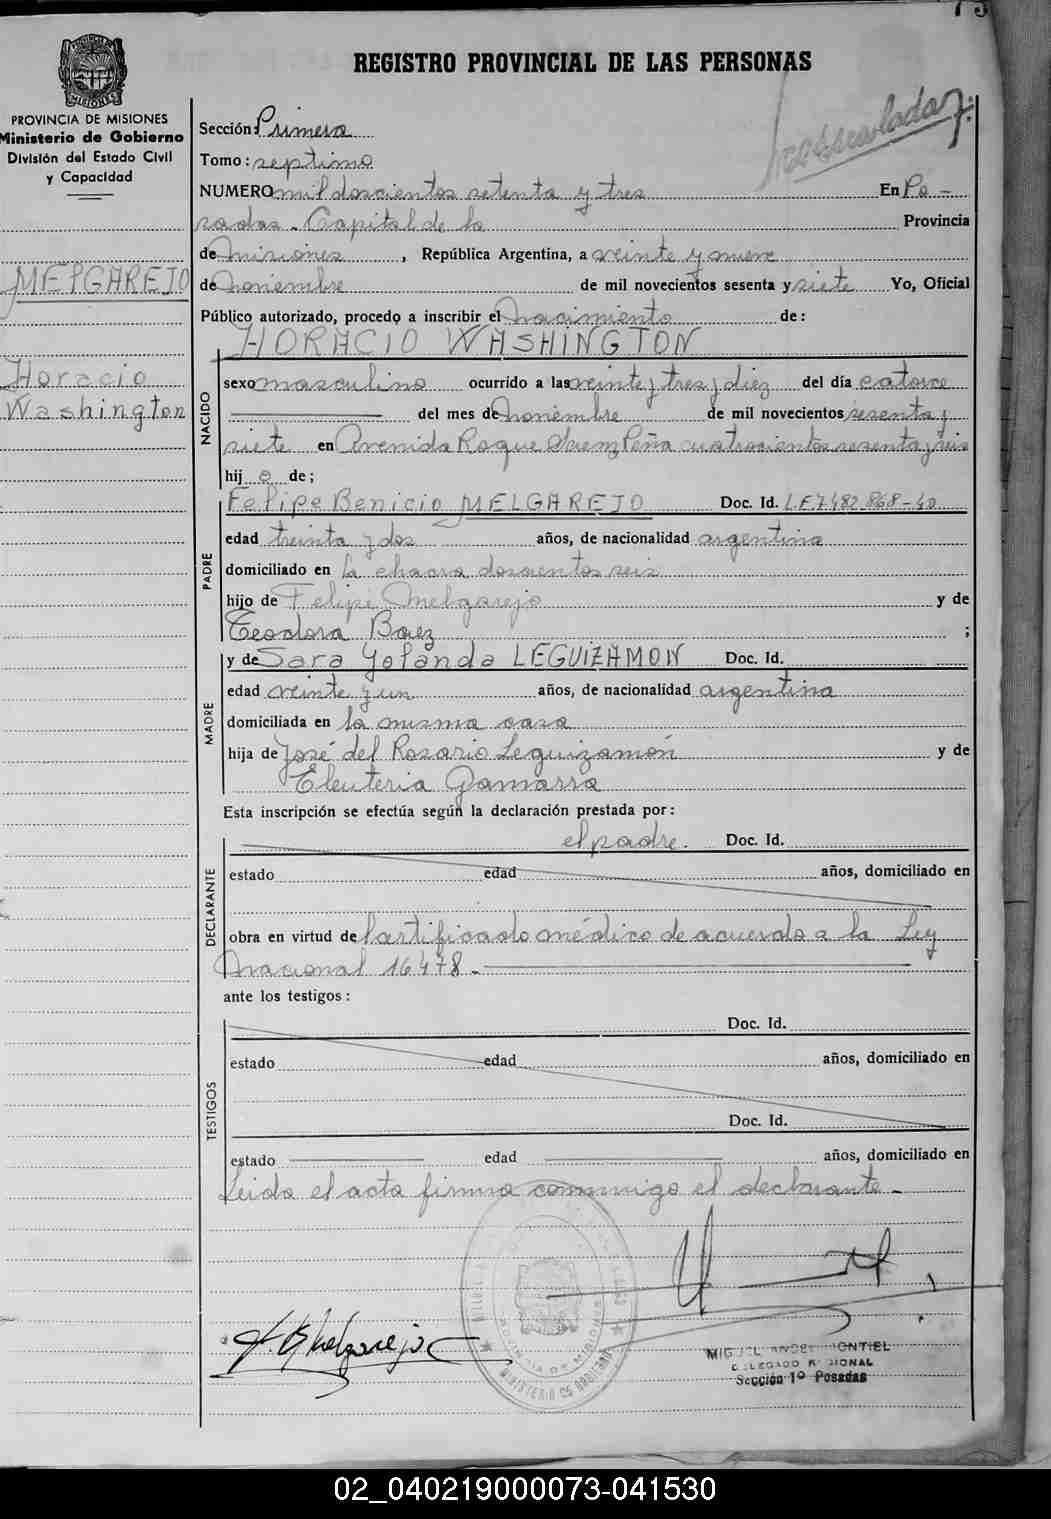 73
REGISTRO PROVINCIAL DE LAS PERSONAS
PROVINCIA DE MISIONES
Ministerio de Gobierno
División del Estado Civil
y Capacidad
MELGAREJO
Horacio
Washington
Sección: Primera
Tomo: septimo
NUMERO mil doscientos setenta y tres En Po-
sadas - Capital de la Provincia
de Misiones, República Argentina, a veinte y nueve
de noviembre de mil novecientos sesenta y siete Yo, Oficial
Público autorizado, procedo a inscribir el nacimiento de:
HORACIO WASHINGTON
NACIDO
sexo masculino ocurrido a las veinte y tres y diez del día catorce
del mes de noviembre de mil novecientos sesenta y
siete en Avenida Roque Saenz Peña cuatrocientos sesenta y seis
hijo de;
PADRE
Felipe Benicio MELGAREJO Doc. Id. L.E 7.482.868-40
edad treinta y dos años, de nacionalidad argentina
domiciliado en la chacra doscientos seis
hijo de Felipe Melgarejo y de
Teodora Baez ;
MADRE
y de Sara Yolanda LEGUIZAMON Doc. Id.
edad veinte y un años, de nacionalidad argentina
domiciliada en la misma casa
hija de José del Rosario Leguizamón y de
Eleuteria Gamarra
Esta inscripción se efectúa según la declaración prestada por:
DECLARANTE
el padre. Doc. Id.
estado edad años, domiciliado en
obra en virtud de Certificado médico de acuerdo a la Ley
Nacional 16478.-
ante los testigos:
TESTIGOS
Doc. Id.
estado edad años, domiciliado en
Doc. Id.
estado edad años, domiciliado en
Leida el acta firma conmigo el declarante-
F. B. Melgarejo
MIGUEL ANGEL MONTIEL
DELEGADO REGIONAL
Sección 1º Posadas
PROVINCIA DE MISIONES
MINISTERIO DE GOBIERNO
02_040219000073-041530